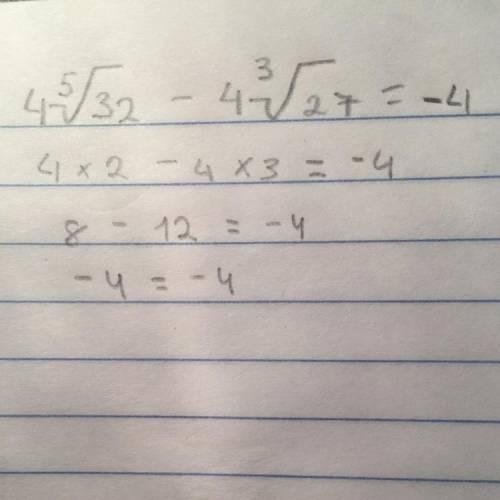 4⁵√32 - 4³√27 = -4
4 × 2 - 4 × 3 = -4
8 - 12 = -4
-4 = -4